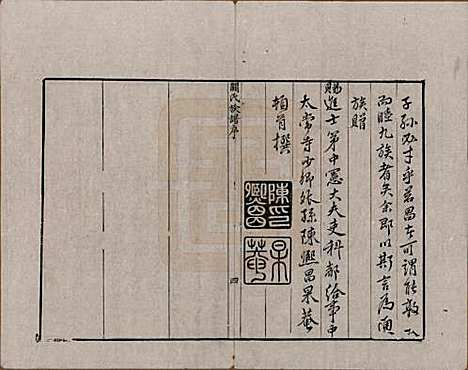 子孫必于乎君昌生可謂能敦
而睦九族者矣余即以斯言為
族贈
賜進士第中憲大夫吏科都給事中
太常寺少卿張孫陳熙昌果菴
頓首撰
關氏族譜序
四
陳印熙昌
果菴